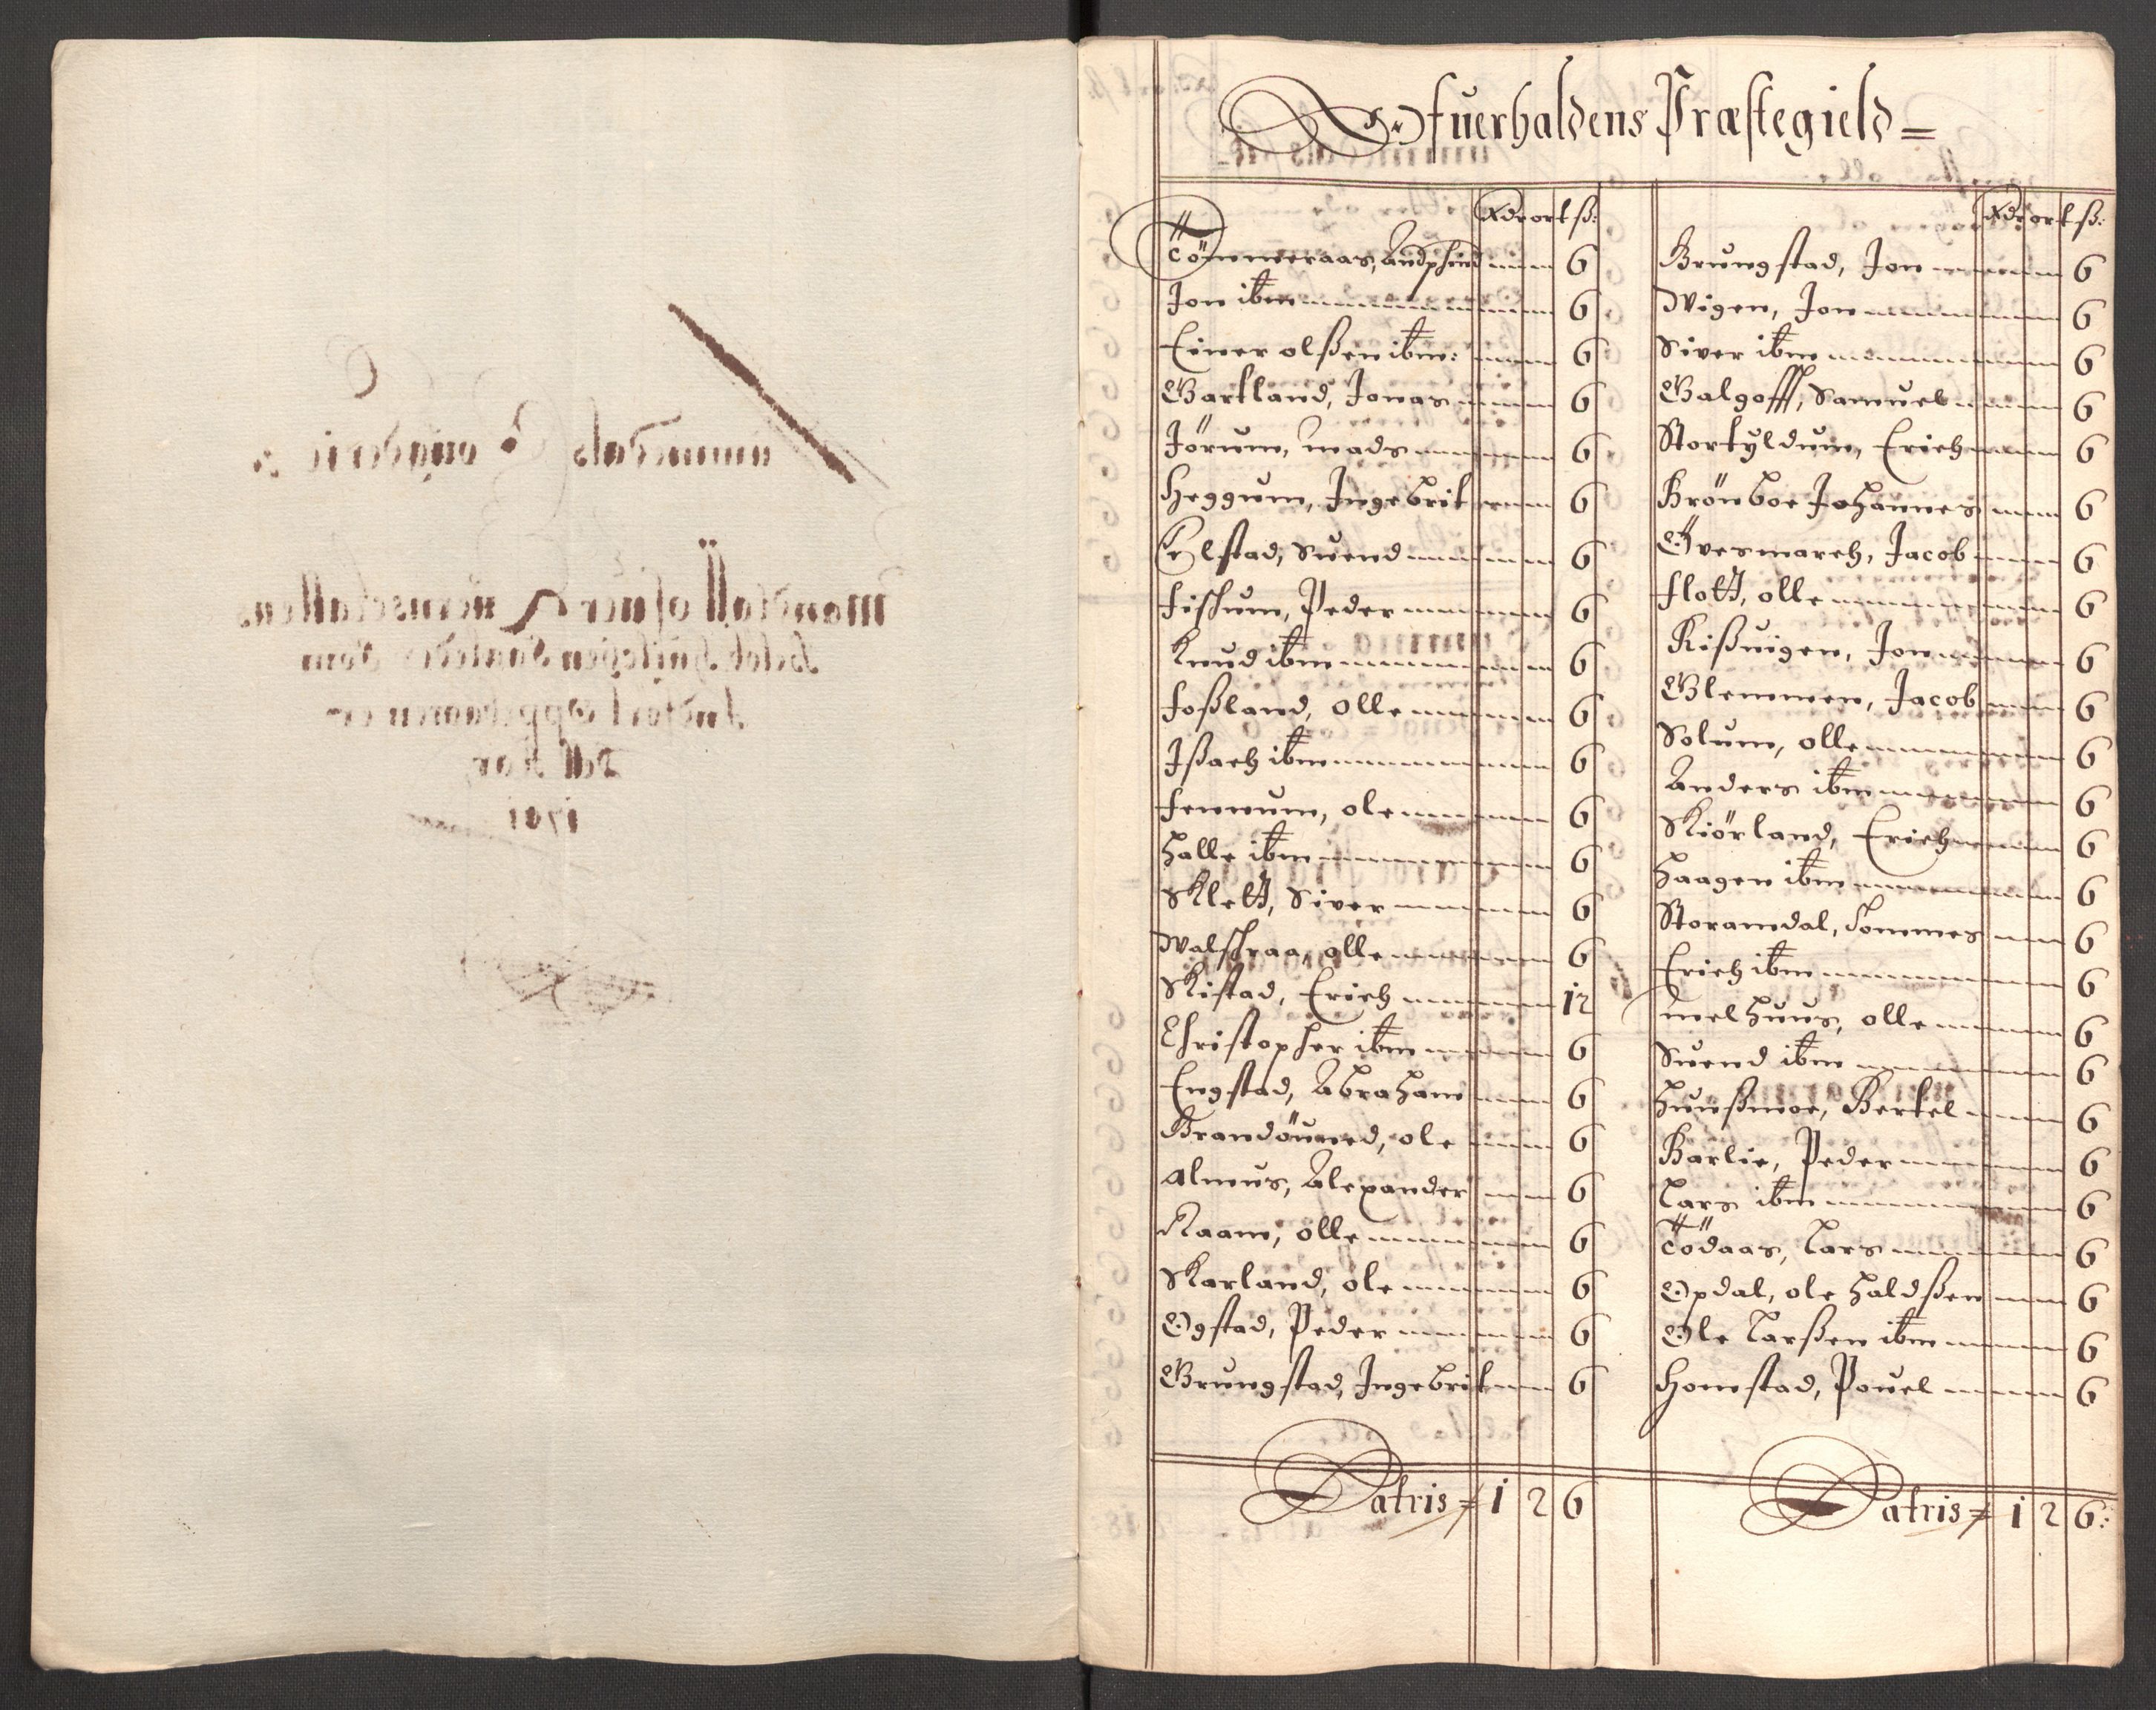 Ofuerhaldens Præstegield =
Rdr ort ß:
Tömmeraas, Andphind 6
Jon ibm 6
Einer olßen ibm: 6
Gartland, Jonas 6
Jörum, mads 6
Heggum, Ingebrit 6
Elstad, Suend 6
fischum, Peder 6
Knud ibm 6
foßland, olle 6
Ißach ibm 6
femnum, ole 6
halle ibm 6
Sklett, Siver 6
Walschraa, olle 6
Skistad, Erich 12
Christopher ibm 6
Engstad, Abraham 6
Brandöuned, ole 6
Almus, Alexander 6
Raam, olle 6
Skarland, ole 6
Ogstad, Peder 6
Grungstad, Ingebrit 6
Latris = 1 2 6
Rdr ort ß:
Grungstad, Jon 6
Wigen, Jon 6
Siver ibm 6
Galgofff, Samuel 6
Stortyldum, Erich 6
Grönboe Johannes 6
Øvermarch, Jacob 6
flott, olle 6
Rißuigen, Jon 6
Glemmen, Jacob 6
Solum, olle 6
Anders ibm 6
Skiörland, Erich 6
Haagen ibm 6
Storamdal, Tommes 6
Erich ibm 6
melhuus, olle 6
Suend ibm 6
Hunßmoe, Bertel 6
Barlie, Peder 6
Lars ibm 6
Tödaas, Lars 6
Opdal, ole haldßen 6
Ole Larßen ibm 6
Homstad, Pouel 6
Latris = 1 2 6: